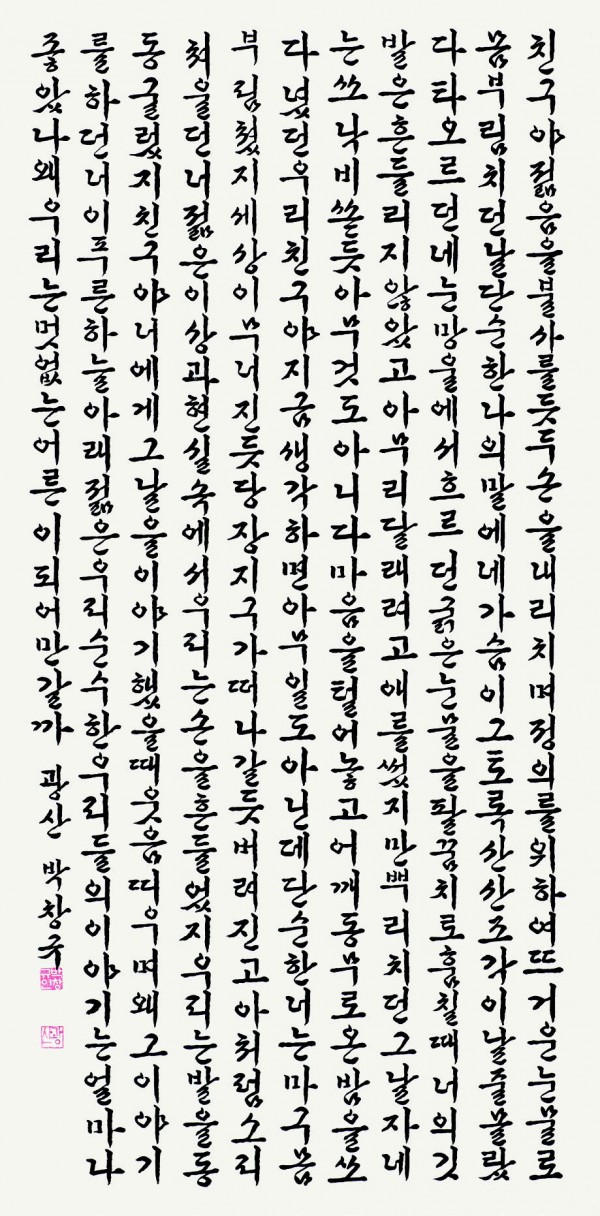 친구야젊음을불사를듯두손을내리치며정의를위하여뜨거운눈물로
몸부림치던날단순한나의말에네가슴이그토록산산조각이날줄몰랐
다타오르던네눈망울에서흐르던굵은눈물을팔꿈치로훔칠때너의깃
발은흔들리지않았고아무리달래려고애를썼지만뿌리치던그날자네
는쏘낙비쏟듯아무것도아니다마음을털어놓고어깨동무로온밤을쏘
다녔던우리친구야지금생각하면아무일도아닌데단순한너는마구몸
부림쳤지세상이무너진듯당장지구가떠나갈듯버려진고아처럼소리
쳐울던너젊은이상과현실속에서우리는손을흔들었지우리는발을동
동굴렀지친구야너에게그날을이야기했을때웃음띠우며왜그이야기
를하던너이푸른하늘아래젊은우리순수한우리들의이야기는얼마나
좋았나왜우리는멋없는어른이되어만갈까 광산 박창국